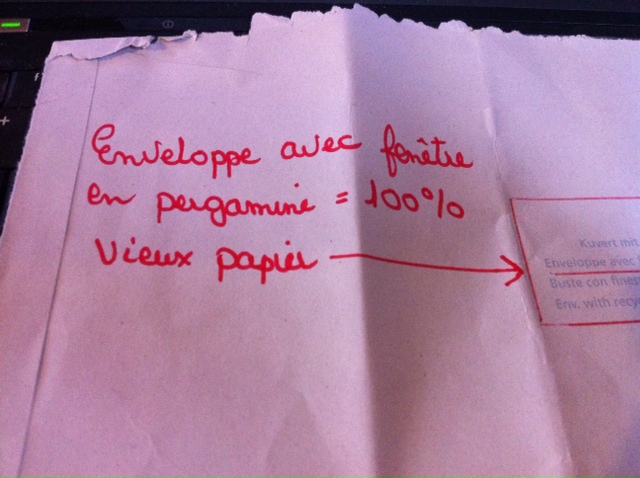 Enveloppe avec fenêtre
en pergamine = 100%
vieux papier
Kuvert mit
Enveloppe avec
Buste con fines
Env. with recy